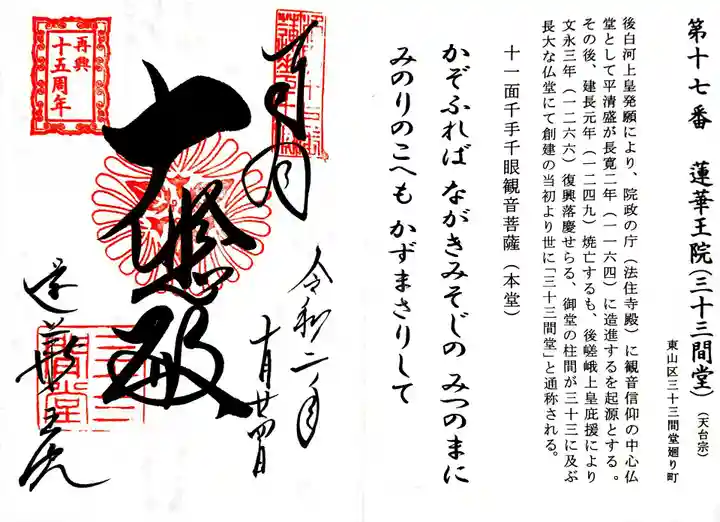 第十七番 蓮華王院(三十三間堂)(天台宗)
東山区三十三間堂廻り町
後白河上皇発願により、院政の庁(法住寺殿)に観音信仰の中心仏
堂として平清盛が長寛二年(一一六四)に造進するを起源とする。
その後、建長元年(一二四九)焼亡するも、後嵯峨上皇庇援により
文永三年(一二六六)復興落慶せらる、御堂の柱間が三十三に及ぶ
長大な仏堂にて創建の当初より世に「三十三間堂」と通称される。
十一面千手千眼観音菩薩(本堂)
かぞふれば ながきみそじの みつのまに
みのりのこへも かずまさりして
大悲殿
令和二年
十月廿四日
蓮華王院
再興
十五周年
三十三
間堂